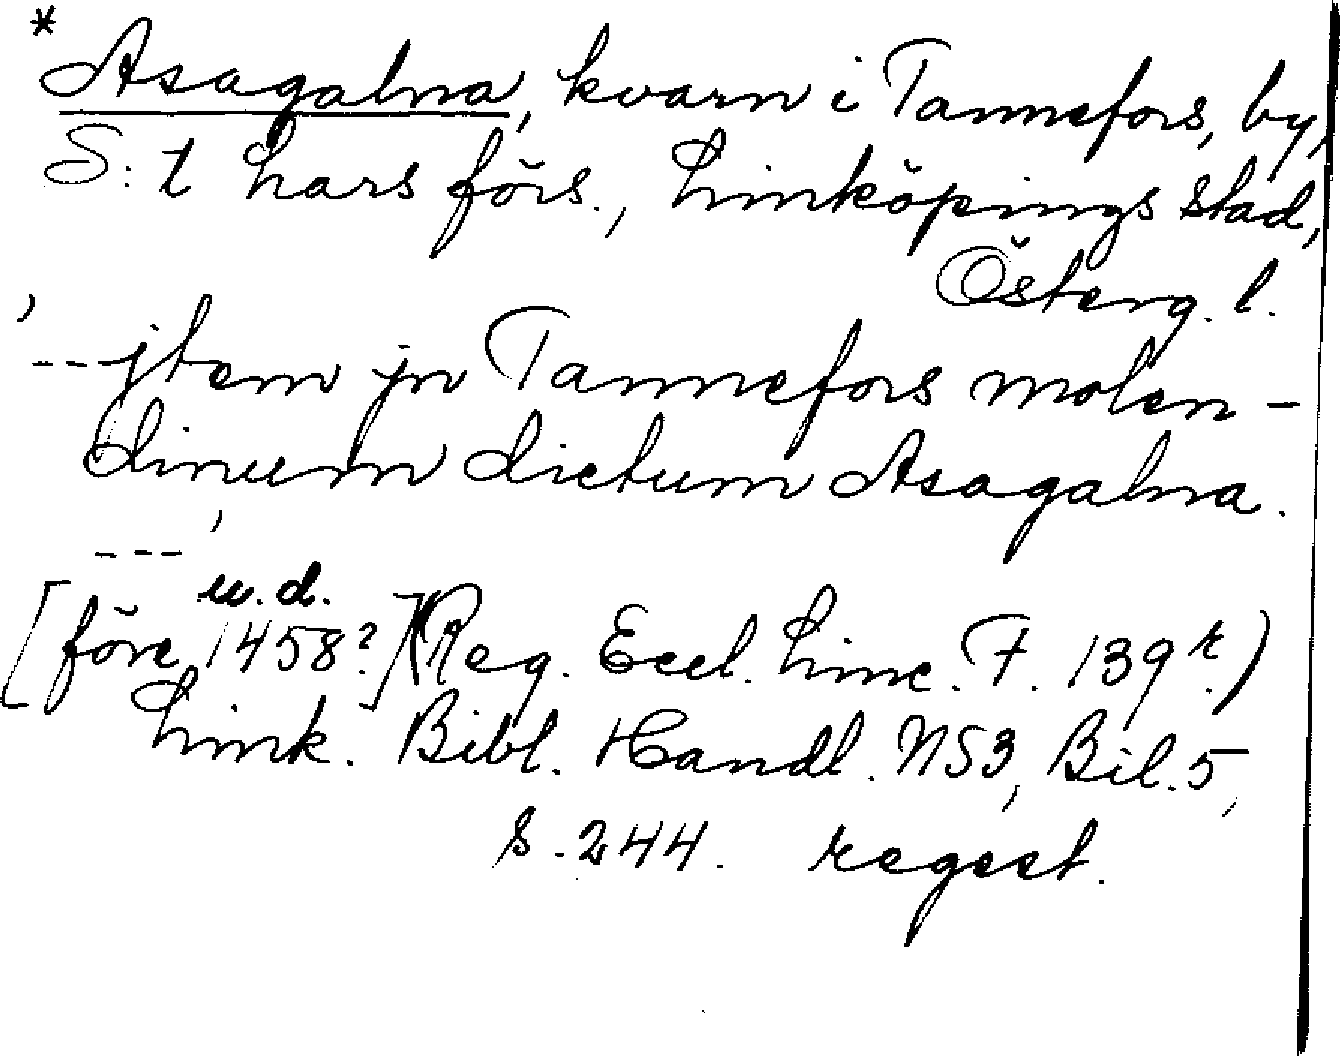 * Asagalna, kvarn i Tannefors, by,
S:t Lars förs., Linköpings stad,
Österg. l.
'--jtem jn Tannefors molen-
dinum dictum Asagalna.
---'
u.d.
[före 1458?] (Reg. Eccl. Linc. F. 139 r.)
Link. Bibl. Handl. NS3, Bil. 5,
s. 244. regest.